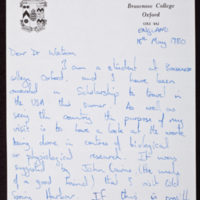 Brasenose College
Oxford
OX1 4AJ
ENGLAND
18th May 1980
Dear Dr Watson
I am a student at Brasenose
College Oxford, and I have been
awarded a Scholarship to travel in
the USA this summer. As well as
seeing the country the purpose of my
visit is to have a look at the work
being done in centres of biological
or physiological research. It was
suggested by John Cairns (the made
of a good friend) that I visit Cold
Spring Harbour. If this is possible